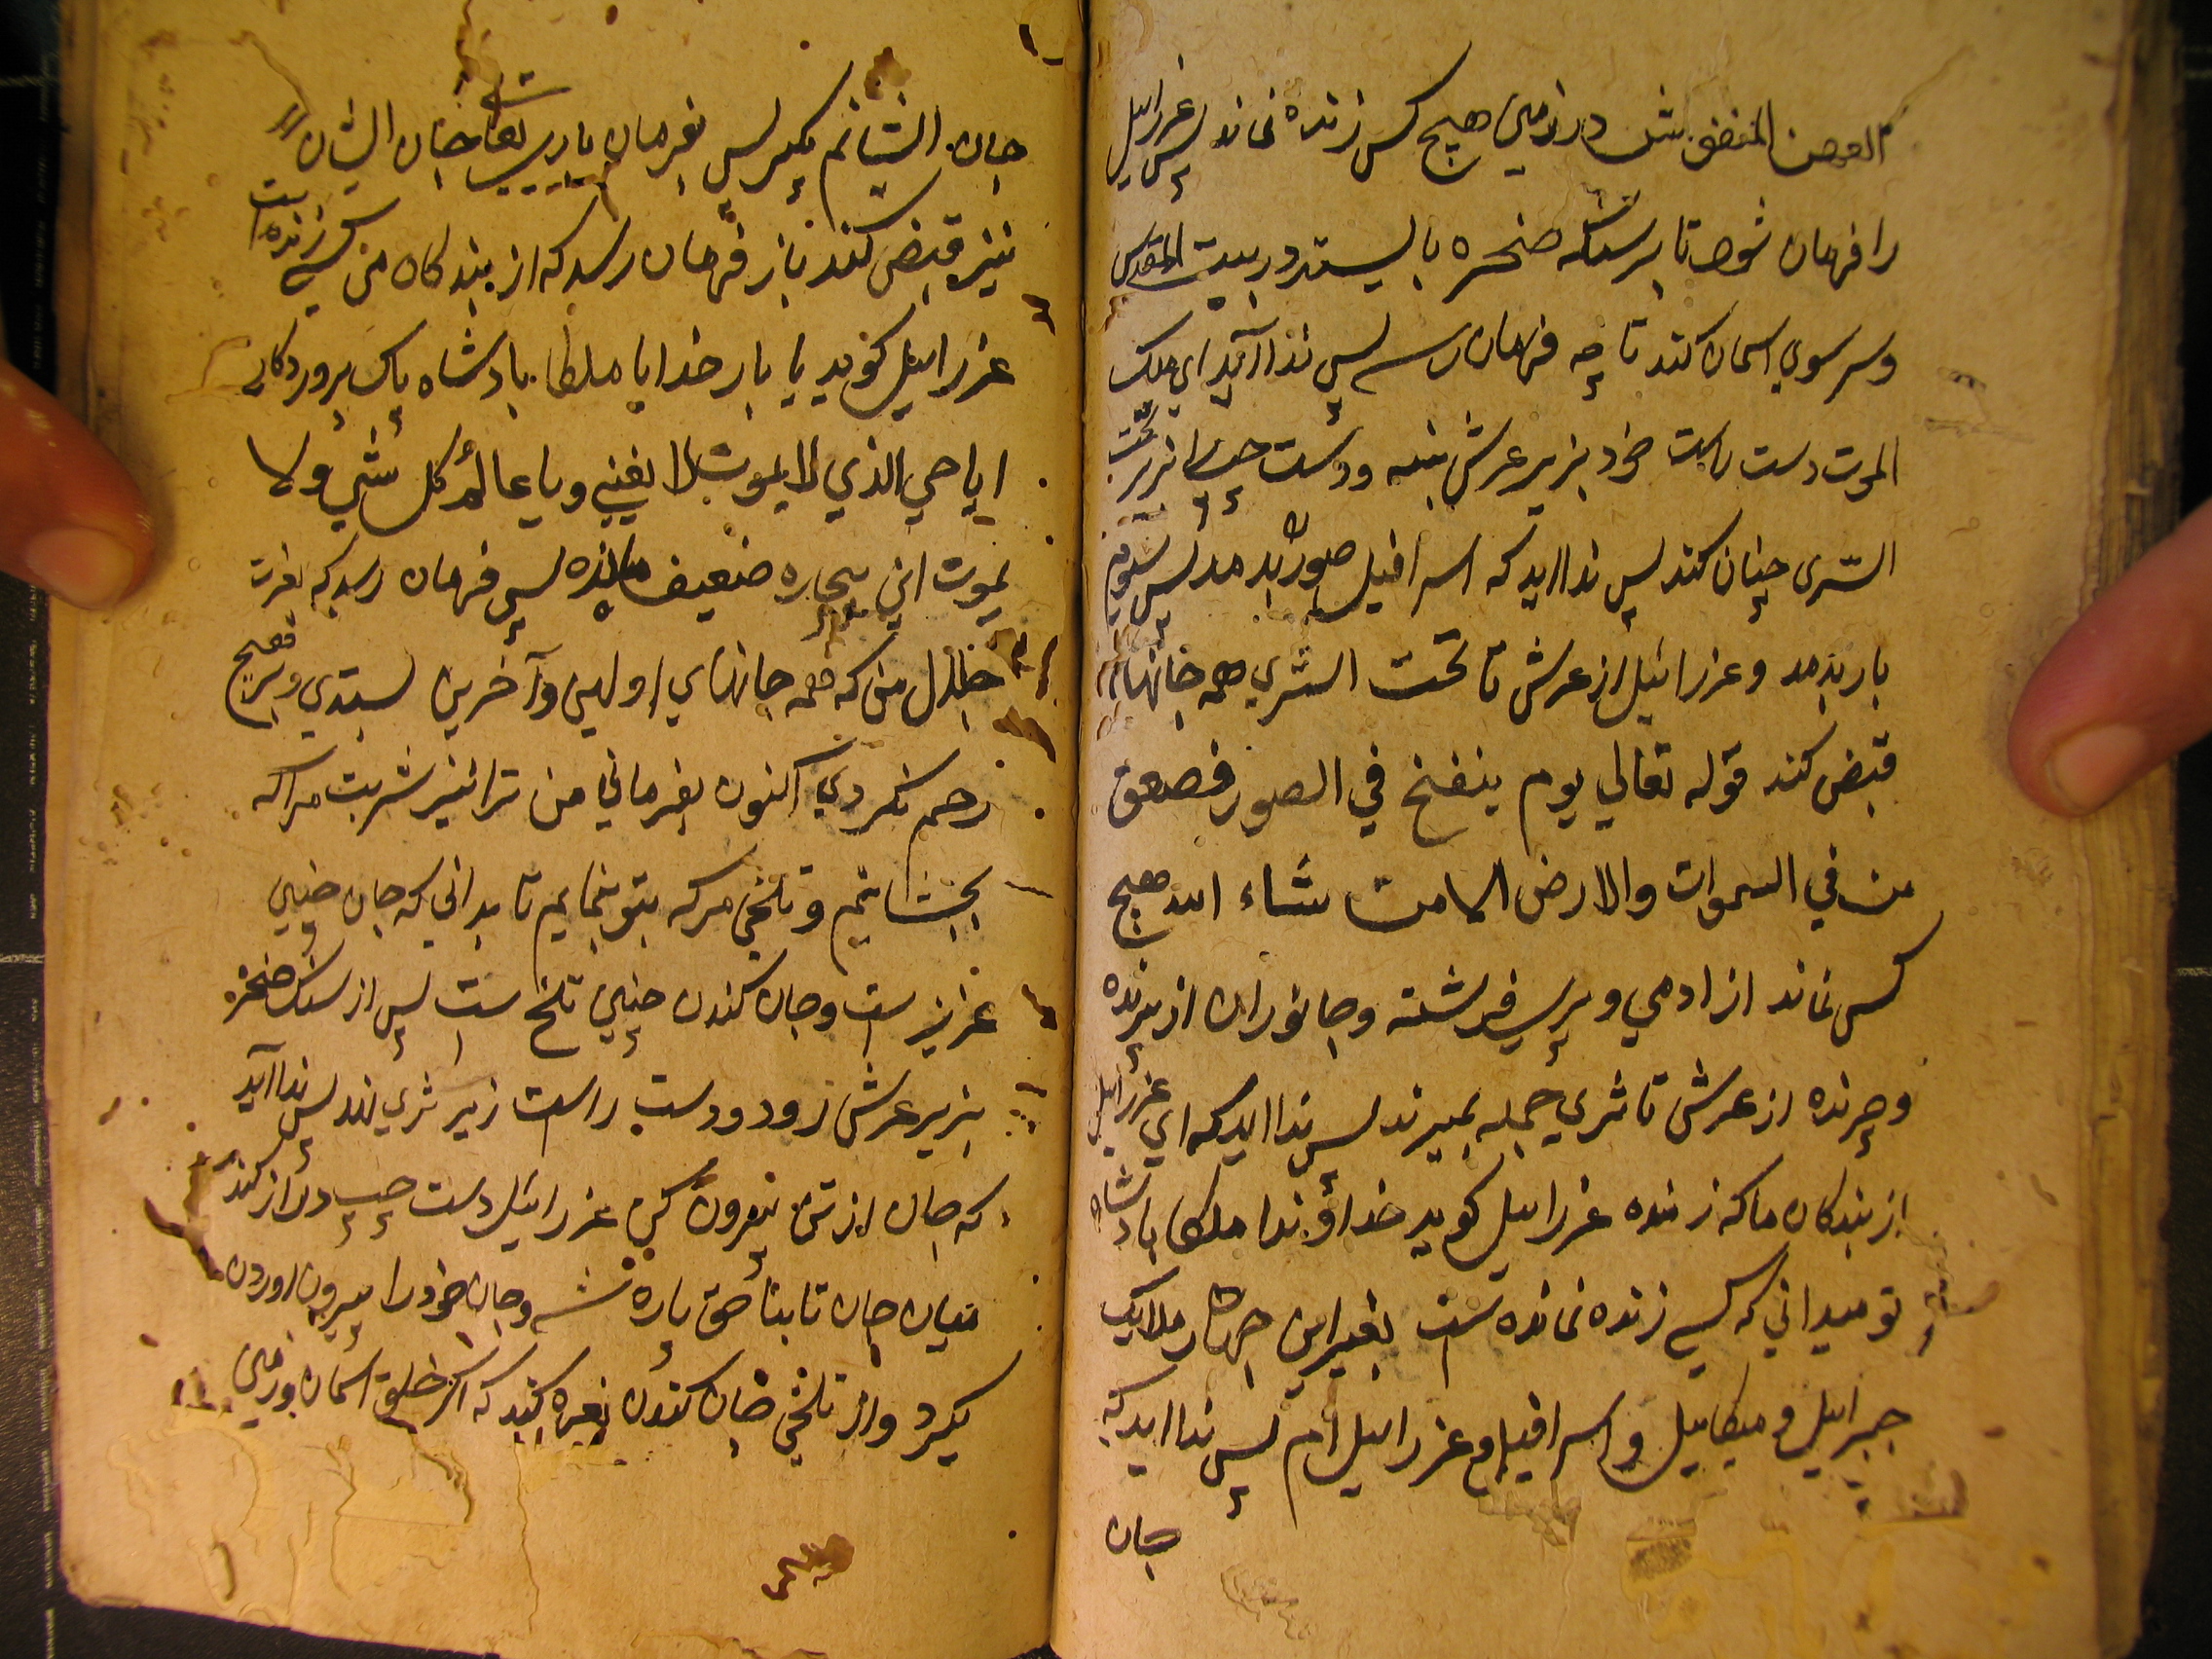 العهن المنفوش در زمین هیچ کس زنده نماند پس عزراییل
را فرمان شود تا بر سنکه صخره بایستد در بیت المقدس
و سر سوی اسمان کند تا چه فرمان رسد پس ندا آید ای ملک
الموت دست راست خود بزیر عرش بنه و دست چپ را بزیر تحت
الثری چنان کند پس ندا اید که اسرافیل صور بدمد پس سوم
بار بدمد و عزرائیل از عرش تا تحت الثری همه جانها
قبض کند قوله تعالی یوم ینفخ في الصور فصعق
من في السموات والارض الا من شاء الله هیچ
کس نماند از ادمی و پری و فرشته و جانوران از پرنده
و چرنده از عرش تا ثری جمله بمیرند پس ندا اید که ای عزراییل
از بندکان ما که زنده عزراییل کوید خداوندا ملکا بادشاها
تو میدانی که کسی زنده نمانده است بغیر این چهار ملایک
جبراییل و میکاییل و اسرافیل و عزراییل ام پس ندا اید که
جان
جان ایشانم بکیر پس بفرمان باری تعالی جان ایشان را
نیز قبض کند باز فرمان رسد که از بندکان من کسی زنده است
عزراییل کوید یا بار خدایا ملکا بادشاه پاک پروردکار
ایا حي الذي لا یموت لا یفني ویا عالم کل شي ولا
یموت این بیچاره ضعیف مانده پس فرمان رسد که بعزت
جلال من که همه جانهای اولین و آخرین بستدی و بر هیچ
رحم نکردی اکنون بفرمانی من ترا نیز شربت مراکه
بچشانیم و تلخی مرکه بتو بنمایم تا بدانی که جان چنین
عزیز ست و جان کندن چنین تلخ است پس از سنک صخره
بزیر عرش رود و دست راست زیر ثری نهد پس ندا آید
که جان از تن بیرون کن عزرائیل دست چپ دراز کند
میان جان تا بناحق پاره شد و جان خود را بیرون اوردن
یکرد و از تلخی جان کندن نعره کند که اکر خلق اسمان و زمین